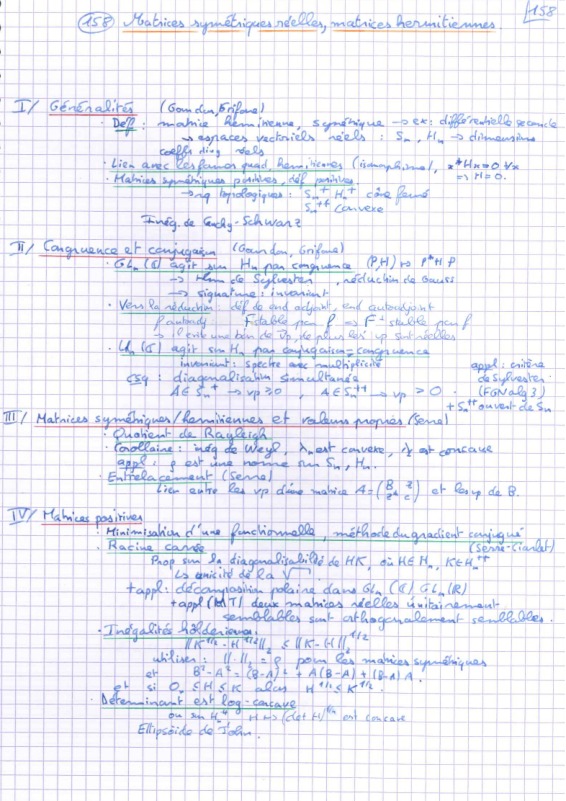 158 Matrices symétriques réelles, matrices hermitiennes. 158
I/ Généralités (Gourdon, Grifone)
· Déf : matrice hermitienne, symétrique → ex: différentielle seconde
→ espaces vectoriels réels : Sn, Hn → dimensions
coeffs diag réels
· Lien avec les formes quad, hermitiennes (isomorphisme), x*Hx=0 ∀x
⇒ H=0.
· Matrices symétriques positives, déf positives.
→ rq topologiques : Sn+ Hn+ cône fermé
Sn++ convexe
Inég. de Cauchy-Schwarz
II/ Congruence et conjugaison (Gourdon, Grifone)
· GLn(ℂ) agit sur Hn par congruence (P,H) ↦ P*HP
→ thm de Sylvester, réduction de Gauss
→ signature : invariant
· Vers la réduction : déf de end adjoint, end autoadjoint
f autoadj F stable par f ⇒ F⊥ stable par f
→ l' existe une bon de vp, de plus les vp sont réelles
· Un(ℂ) agit sur Hn par conjugaison = congruence
invariant : spectre avec multiplicité appl : critère
csq : diagonalisation simultanée de Sylvester
A ∈ Sn+ → vp ≥ 0, A ∈ Sn++ → vp > 0 . (FGN alg 3)
+ Sn++ ouvert de Sn
III/ Matrices symétriques/hermitiennes et valeurs propres (Serre)
· Quotient de Rayleigh
· Corollaire : inég de Weyl, λn est convexe, λ1 est concave
appl : ρ est une norme sur Sn, Hn.
· Entrelacement (Serre)
Lien entre les vp d'une matrice A = (B z / z* c) et les vp de B.
IV/ Matrices positives
· Minimisation d'une fonctionnelle, méthode du gradient conjugué
(Serre-Ciarlet)
· Racine carrée
Prop sur la diagonalisabilité de HK, où H ∈ Hn, K ∈ Hn++
↳ unicité de la √ .
+ appl : décomposition polaire dans GLn(ℂ) GLn(ℝ)
+ appl (MT) deux matrices réelles unitairement
semblables sont orthogonalement semblables.
· Inégalités höldériennes.
‖K^1/2 - H^1/2‖₂ ≤ ‖K-H‖₂^1/2
utiliser : ‖·‖₂ = ρ pour les matrices symétriques
et B²-A² = (B-A)² + A(B-A) + (B-A)A.
et si 0 ≤ H ≤ K alors H^1/2 ≤ K^1/2.
· Déterminant est log-concave
ou sur Hn+ H ↦ (det H)^1/n est concave
Ellipsoïde de John.